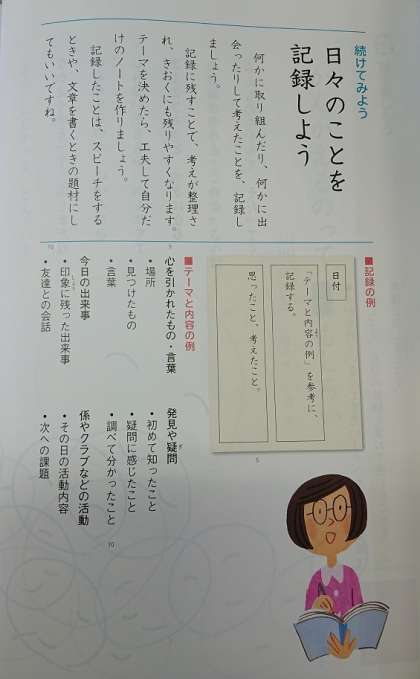 続けてみよう
日々のことを
記録しよう
何かに取り組んだり、何かに出
会ったりして考えたことを、記録し
ましょう。
記録に残すことで、考えが整理さ
れ、きおくにも残りやすくなります。
テーマを決めたら、工夫して自分だ
けのノートを作りましょう。
記録したことは、スピーチをする
ときや、文章を書くときの題材にし
てもいいですね。
5
10
■記録の例
日付
「テーマと内容の例」を参考に、
記録する。
思ったこと、考えたこと。
5
■テーマと内容の例
心を引かれたもの・言葉
・場所
・見つけたもの
・言葉
今日の出来事
・印象に残った出来事
・友達との会話
発見や疑問
・初めて知ったこと
・疑問に感じたこと
・調べて分かったこと
係やクラブなどの活動
・その日の活動内容
・次への課題
10